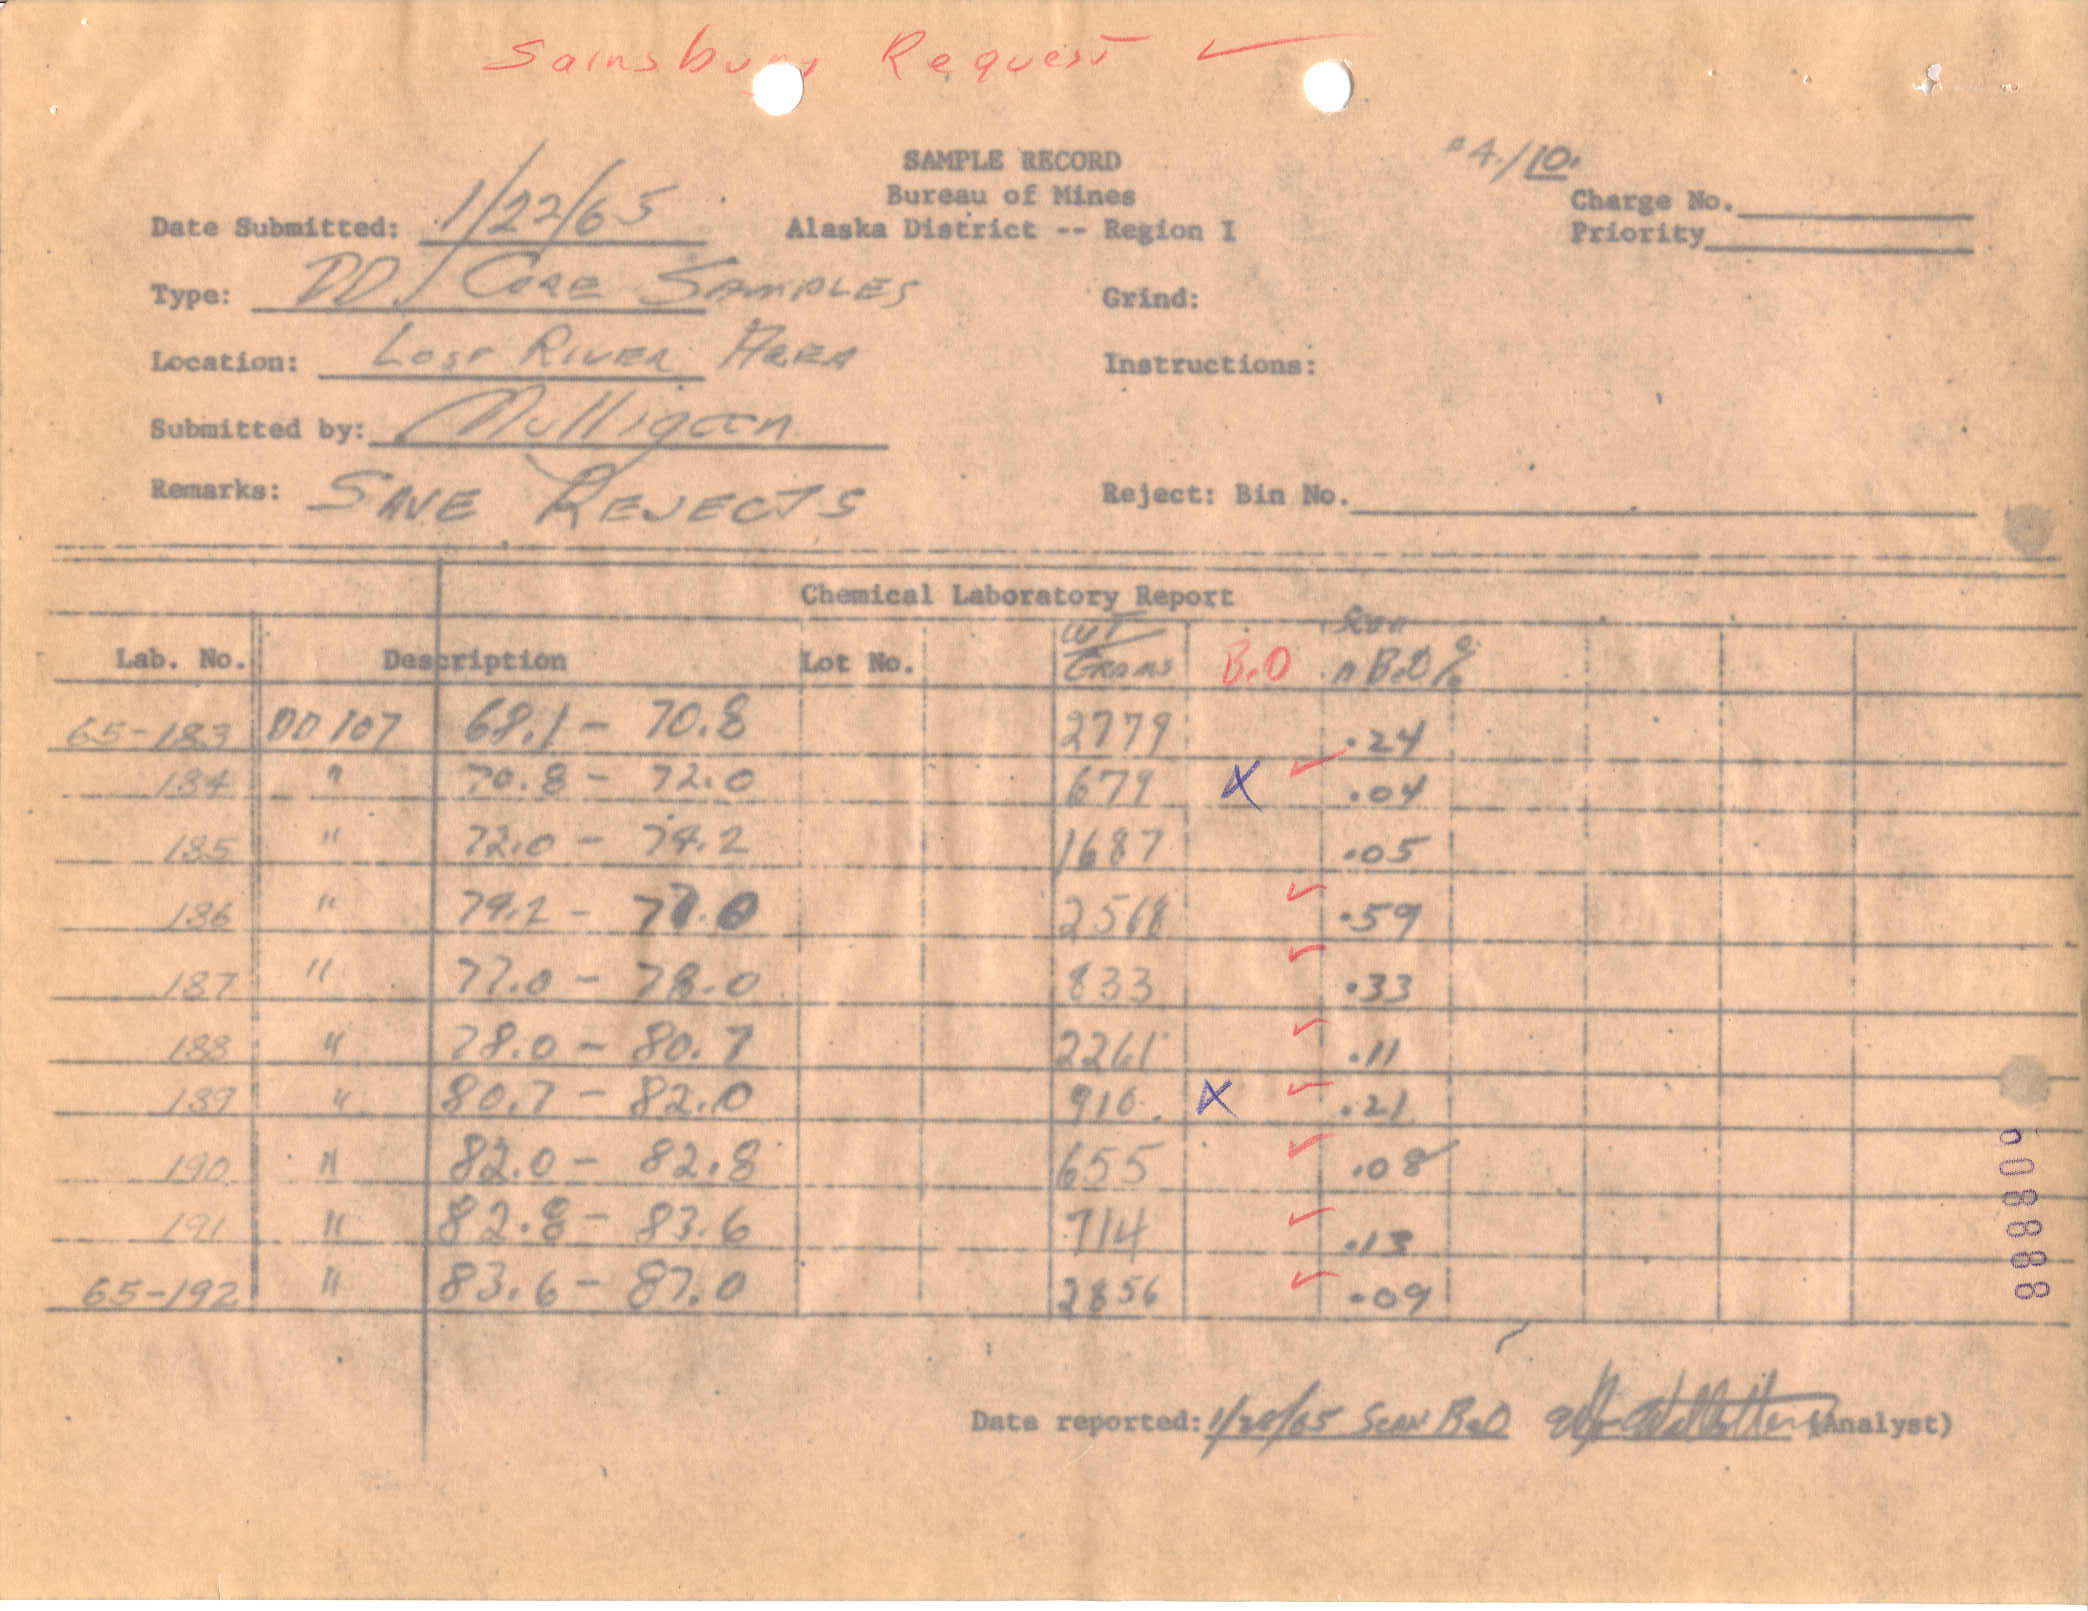 Sainsbury Request ✓
SAMPLE RECORD
Bureau of Mines
Alaska District -- Region I
#4/10
Charge No.
Priority
Date Submitted: 1/22/65
Type: DD Core Samples
Grind:
Location: Lost River Area
Instructions:
Submitted by: Mulligan
Remarks: SAVE REJECTS
Reject: Bin No.
Chemical Laboratory Report
Lab. No. Description Lot No. WT Grams BeO Scan BeO %
65-183 DD 107 68.1 - 70.8 2779 .24
184 " 70.8 - 72.0 679 X ✓ .04
185 " 72.0 - 74.2 1687 .05
186 " 74.2 - 77.0 2568 ✓ .59
187 " 77.0 - 78.0 833 ✓ .33
188 " 78.0 - 80.7 2261 ✓ .11
189 " 80.7 - 82.0 910 X ✓ .21
190 " 82.0 - 82.8 655 ✓ .08
191 " 82.8 - 83.6 714 ✓ .13
65-192 " 83.6 - 87.0 2856 ✓ .09
Date reported: 1/28/65 Scan BeO (Analyst)
008888